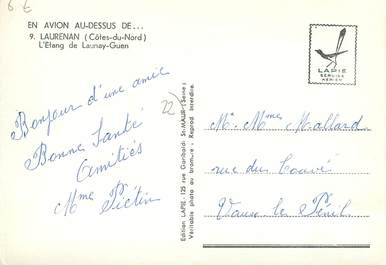 6 €
EN AVION AU-DESSUS DE...
9. LAURENAN (Côtes-du-Nord)
L'Étang de Launay-Guen
Bonjour d'une amie
Bonne Santé
Amitiés
Mme Piétin
22)
Edition LAPIE - 125 rue Garibaldi St-MAUR (Seine)
Véritable photo au bromure - Reprod. Interdite
LAPIE
SERVICE
AERIEN
Mr Mme Mallard
rue du
Vaux le Pénil